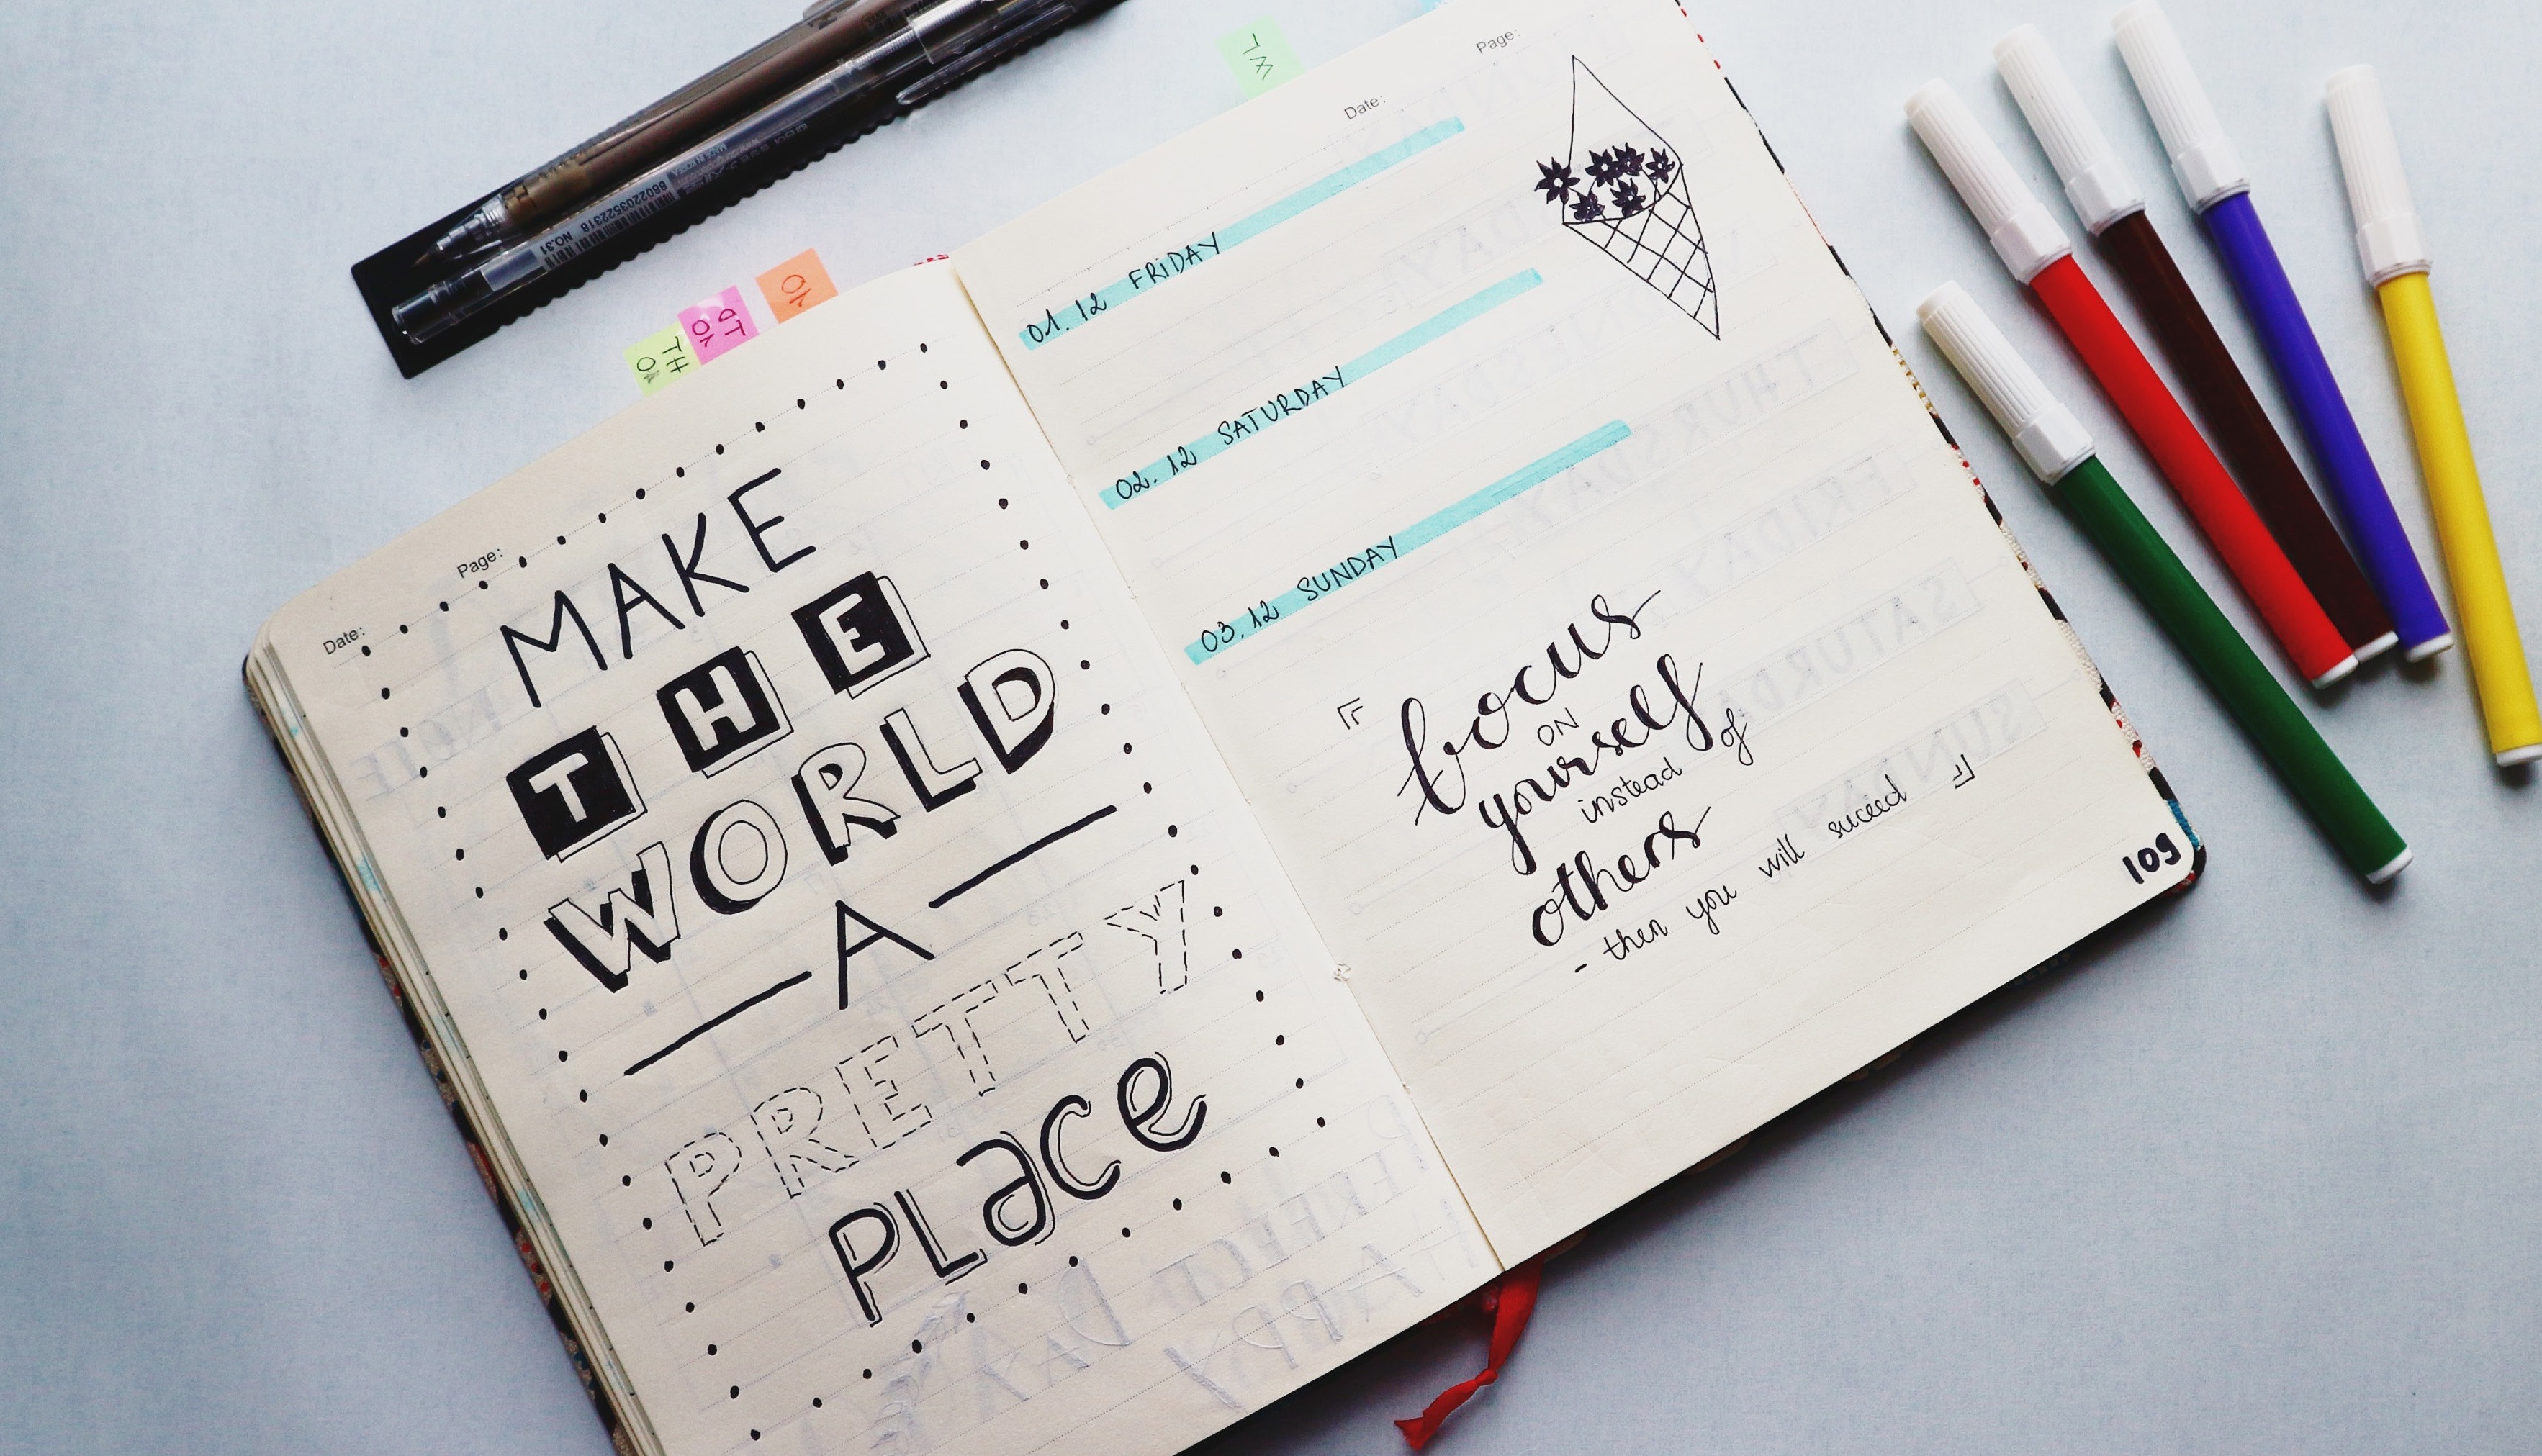 Page:
Date:
MAKE
THE
WORLD
A
PRETTY
PLace
Page:
Date:
01.12 FRIDAY
02.12 SATURDAY
03.12 SUNDAY
focus
ON
yourself
instead of
others
- then you will suceed
109
8802203522318 NO.31
MADE IN KOREA